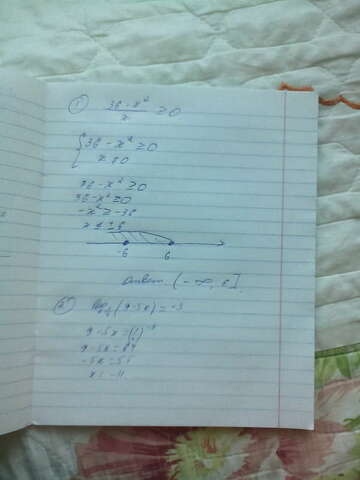 ① 36 - x² / x ≥ 0
{ 36 - x² ≥ 0
x ≠ 0
36 - x² ≥ 0
36 - x² ≥ 0
-x² ≥ -36
x ≤ ± 6
-6 6
Ответ (-∞, 6]
② (9-5x) = -3
9 - 5x = ( )⁻³
9 - 5x = 64
-5x = 55
x = -11